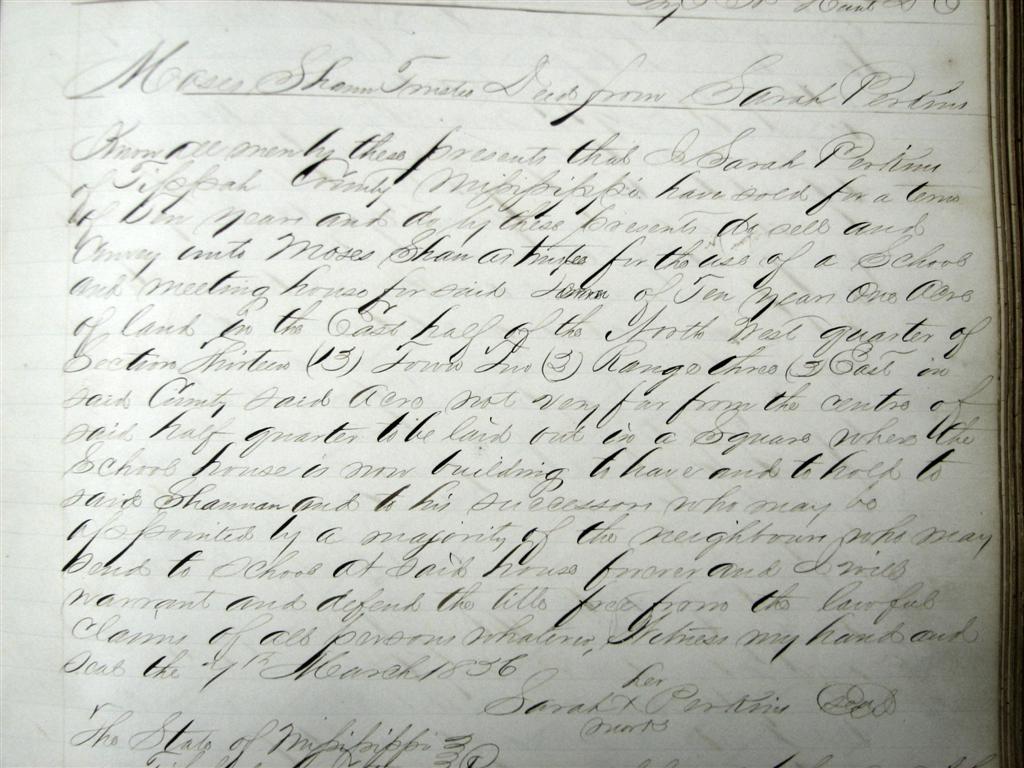 Moses Shann Trustee Deed from Sarah Perkins
Know all men by these presents that I Sarah Perkins
of Tippah County Mississippi have sold for a term
of ten years and do by these presents do sell and
Convey unto Moses Shan as trustee for the use of a School
and meeting house for said term of Ten years One Acre
of land in the East half of the North West quarter of
Section Thirteen (13) Town (3) Range three (3) East in
said County said Acre not very far from the centre of
said half quarter to be laid out in a Square where the
School house is now building to have and to hold to
said Shannan and to his successors who may be
appointed by a majority of the neighbours who may
send to School at said house forever and I will
warrant and defend the title free from the lawful
claims of all persons whatever, Witness my hand and
seal the 7th March 1856
her
Sarah X Perkins
mark
The State of Mississippi